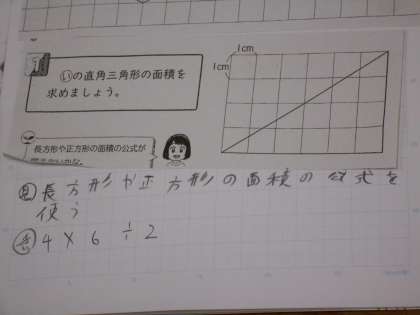 1cm
1cm
㋑の直角三角形の面積を
求めましょう。
長方形や正方形の面積の公式が
見 長方形や正方形の面積の公式を
使う
4×6÷2